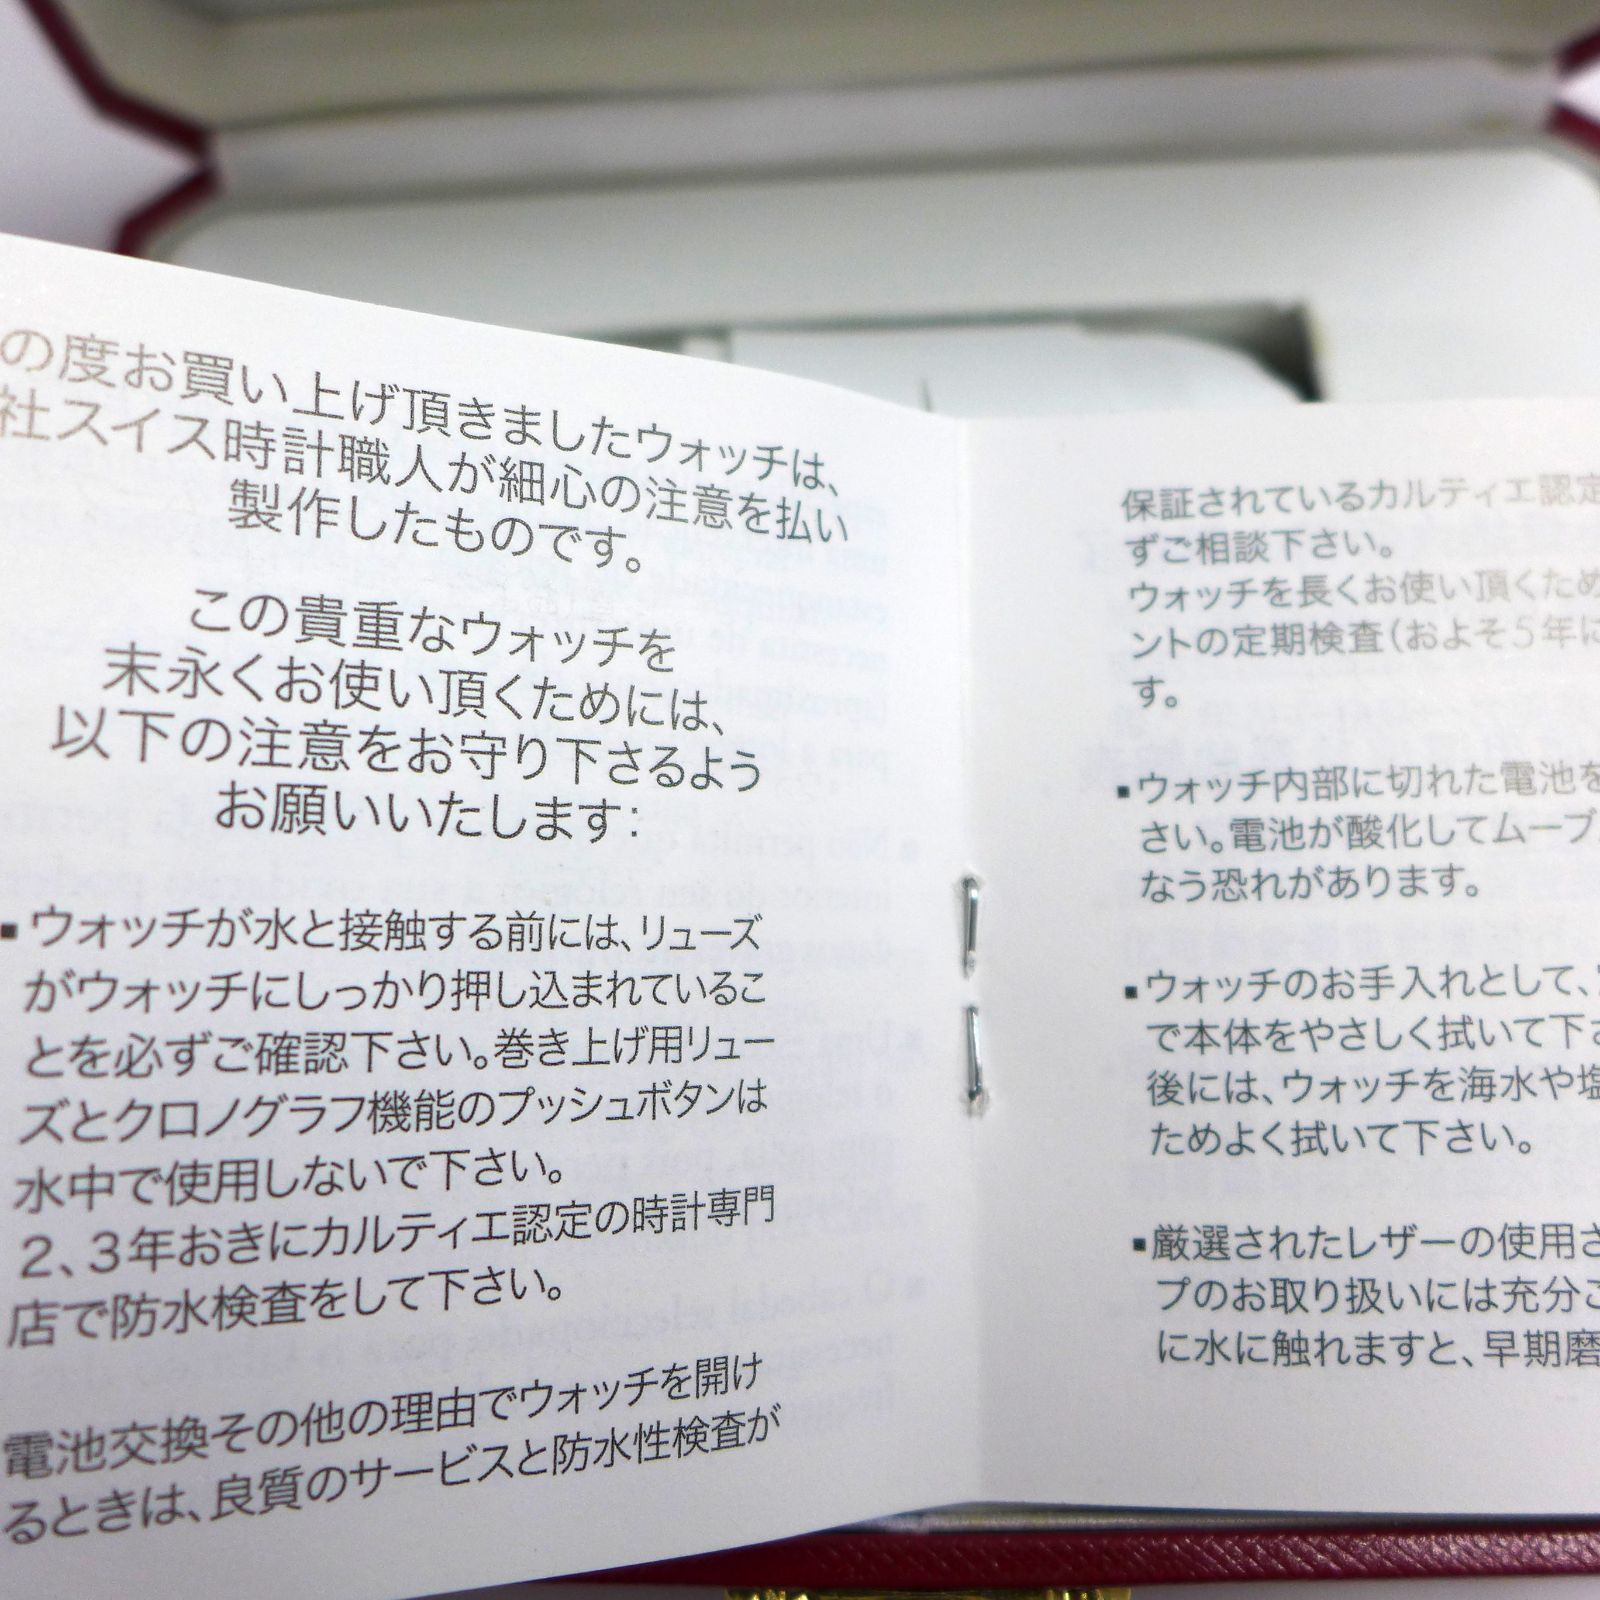 の度お買い上げ頂きましたウォッチは、
社スイス時計職人が細心の注意を払い
製作したものです。
この貴重なウォッチを
末永くお使い頂くためには、
以下の注意をお守り下さるよう
お願いいたします:
▪ウォッチが水と接触する前には、リューズ
がウォッチにしっかり押し込まれているこ
とを必ずご確認下さい。巻き上げ用リュー
ズとクロノグラフ機能のプッシュボタンは
水中で使用しないで下さい。
2、3年おきにカルティエ認定の時計専門
店で防水検査をして下さい。
電池交換その他の理由でウォッチを開け
るときは、良質のサービスと防水性検査が
保証されているカルティエ認定
ずご相談下さい。
ウォッチを長くお使い頂くため
ントの定期検査(およそ5年に
す。
▪ウォッチ内部に切れた電池を
さい。電池が酸化してムーブ
なう恐れがあります。
▪ウォッチのお手入れとして、
で本体をやさしく拭いて下さ
後には、ウォッチを海水や塩
ためよく拭いて下さい。
▪厳選されたレザーの使用さ
プのお取り扱いには充分ご
に水に触れますと、早期磨